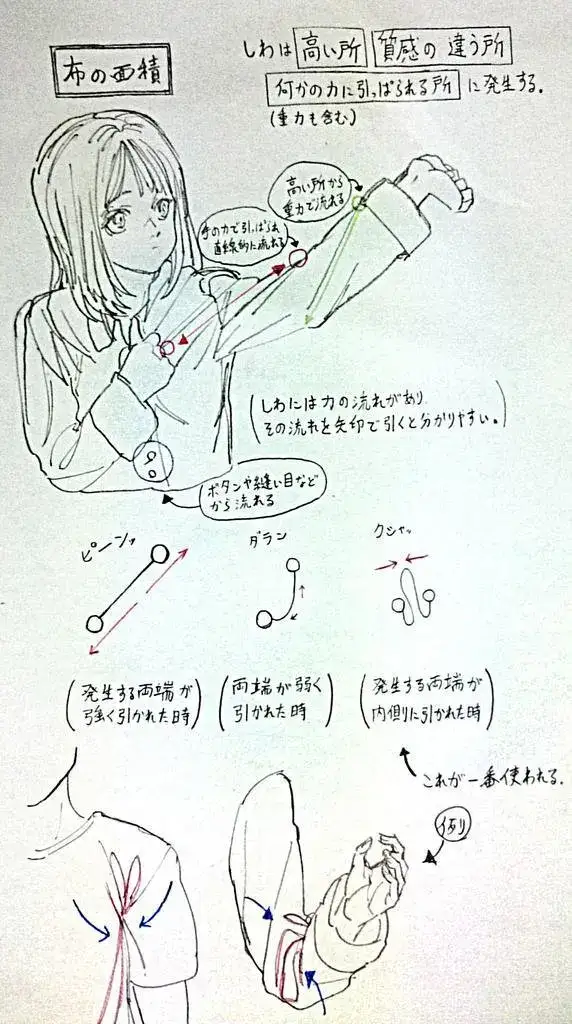 布の面積
しわは 高い所 質感の 違う所
何かの力に引っぱられる所 に発生する.
(重力も含む)
高い所から
重力で流れる
手の力で引っぱられ
直線的に流れる
(しわには力の流れがあり,
その流れを矢印で引くと分かりやすい。)
ボタンや縫い目など
から流れる
ピーンッ
ダラン
クシャッ
(発生する両端が
強く引かれた時)
(両端が弱く
引かれた時)
(発生する両端が
内側に引かれた時)
これが一番使われる.
例